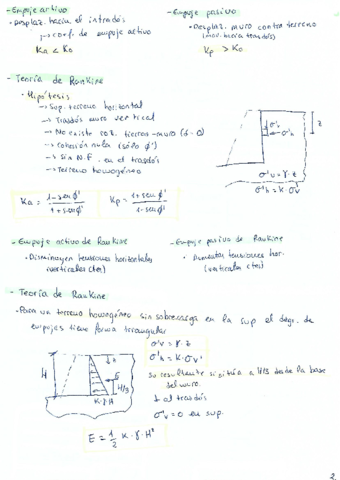 - Empuje activo
• Desplaz. hacia el intradós
↳ coef. de empuje activo
Ka < Ko
- Empuje pasivo
• Desplaz. muro contra terreno
(mov. hacia trasdós)
Kp > Ko
- Teoría de Rankine
• Hipótesis
→ Sup. terreno horizontal
→ Trasdós muro vertical
→ No existe roz. tierras-muro (δ=0)
→ Cohesión nula (sólo ϕ')
→ Sin N.F. en el trasdós
→ Terreno homogéneo
σ'v
σ'h
z
σ'v = γ·z
σ'h = K·σ'v
Ka = 1-sen ϕ' / 1+sen ϕ'
Kp = 1+sen ϕ' / 1-sen ϕ'
- Empuje activo de Rankine
• Disminuyen tensiones horizontales
(verticales cte)
- Empuje pasivo de Rankine
• Aumentan tensiones hor.
(verticales cte)
- Teoría de Rankine
• Para un terreno homogéneo sin sobrecarga en la sup el diagr. de
empujes tiene forma triangular
σ'v = γ·z
σ'h = K·σv'
Su resultante se sitúa a H/3 desde la base
del muro.
⊥ al trasdós
σ'v = 0 en sup.
H
z
E
H/3
K·γ·H
E = 1/2 K·γ·H²
2